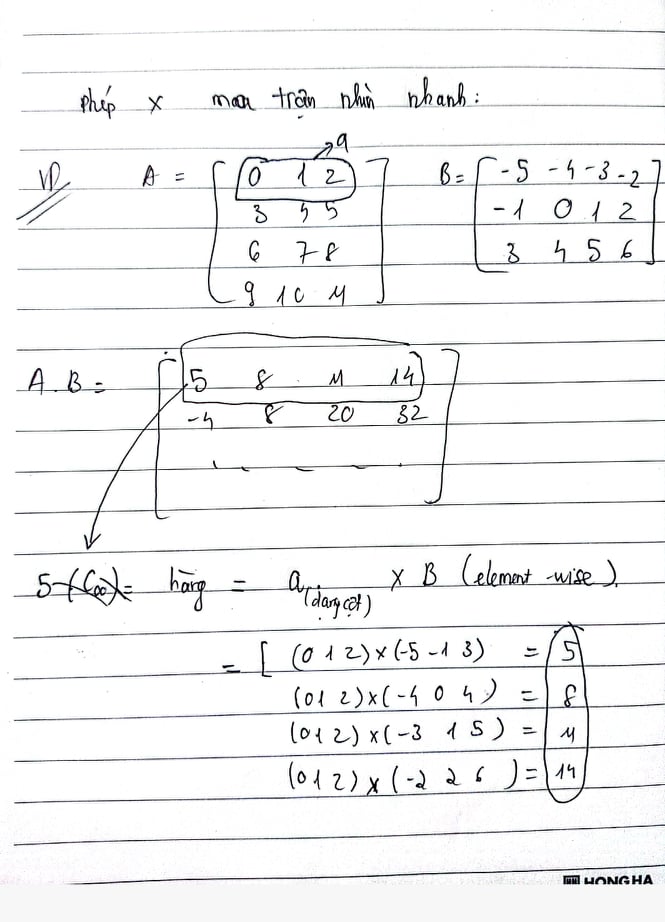 phép x ma trận nhìn nhanh:
VD A = [ 0 1 2 → a B = [ -5 -4 -3 -2
3 4 5 -1 0 1 2
6 7 8 3 4 5 6 ]
9 10 11 ]
A . B = [ 5 8 11 14
-4 8 20 32
- - - - ]
5 (C00) = hàng = a (dạng cột) x B (element-wise).
= [ (0 1 2) x (-5 -1 3) = 5
(0 1 2) x (-4 0 4) = 8
(0 1 2) x (-3 1 5) = 11
(0 1 2) x (-2 2 6) = 14
HONG HA